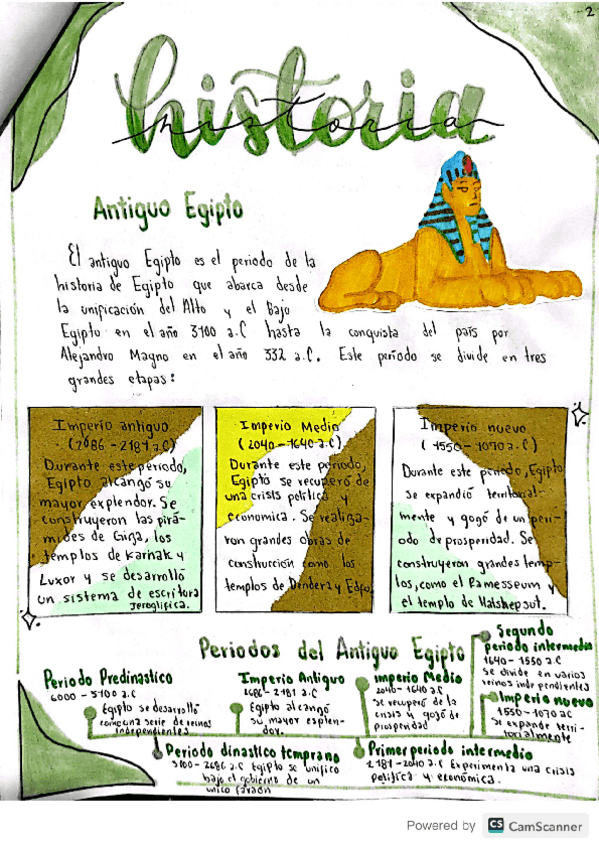 2
historia
historia
Antiguo Egipto
El antiguo Egipto es el periodo de la
historia de Egipto que abarca desde
la unificación del Alto y el Bajo
Egipto en el año 3100 a.C hasta la conquista del país por
Alejandro Magno en el año 332 a.C. Este período se divide en tres
grandes etapas:
Imperio antiguo
(2986 - 2181 a.C)
Durante este período,
Egipto alcanzó su
mayor explendor. Se
construyeron las pirá-
mides de Giza, los
templos de Karnak y
Luxor y se desarrolló
un sistema de escritura
jeroglífica.
Imperio Medio
(2040 - 1640 a.c)
Durante este período,
Egipto se recuperó de
una crisis política y
economica. Se realiza-
ron grandes obras de
construcción como los
templos de Dendera y Edfu.
Imperio nuevo
(1550 - 1070 a.C)
Durante este período, Egipto
se expandió territorial-
mente y gogó de un perí-
odo de prosperidad. Se
construyeron grandes temp-
los, como el Ramesseum y
el templo de Hatshepsut.
Periodos del Antiguo Egipto
Periodo Predinastico
6000 - 3100 a.C
Egipto se desarrolló
como una serie de reinos
independientes
Imperio Antiguo
2686 - 2181 a.C
Egipto alcanzó
su mayor esplen-
dor.
imperio Medio
2040 - 1640 a.C
se recuperó de la
crisis y gozó de
prosperidad
Segundo
periodo intermedio
1640 - 1550 a.C
se divide en varios
reinos independientes
Imperio nuevo
1550 - 1070 aC
se expande terri-
torialmente
Periodo dinastico temprano
3100 - 2686 a.C Egipto se unifico
bajo el gobierno de un
unico faraón
Primer periodo intermedio
2181 - 2040 a.C Experimenta una crisis
política y económica.
Powered by CS CamScanner